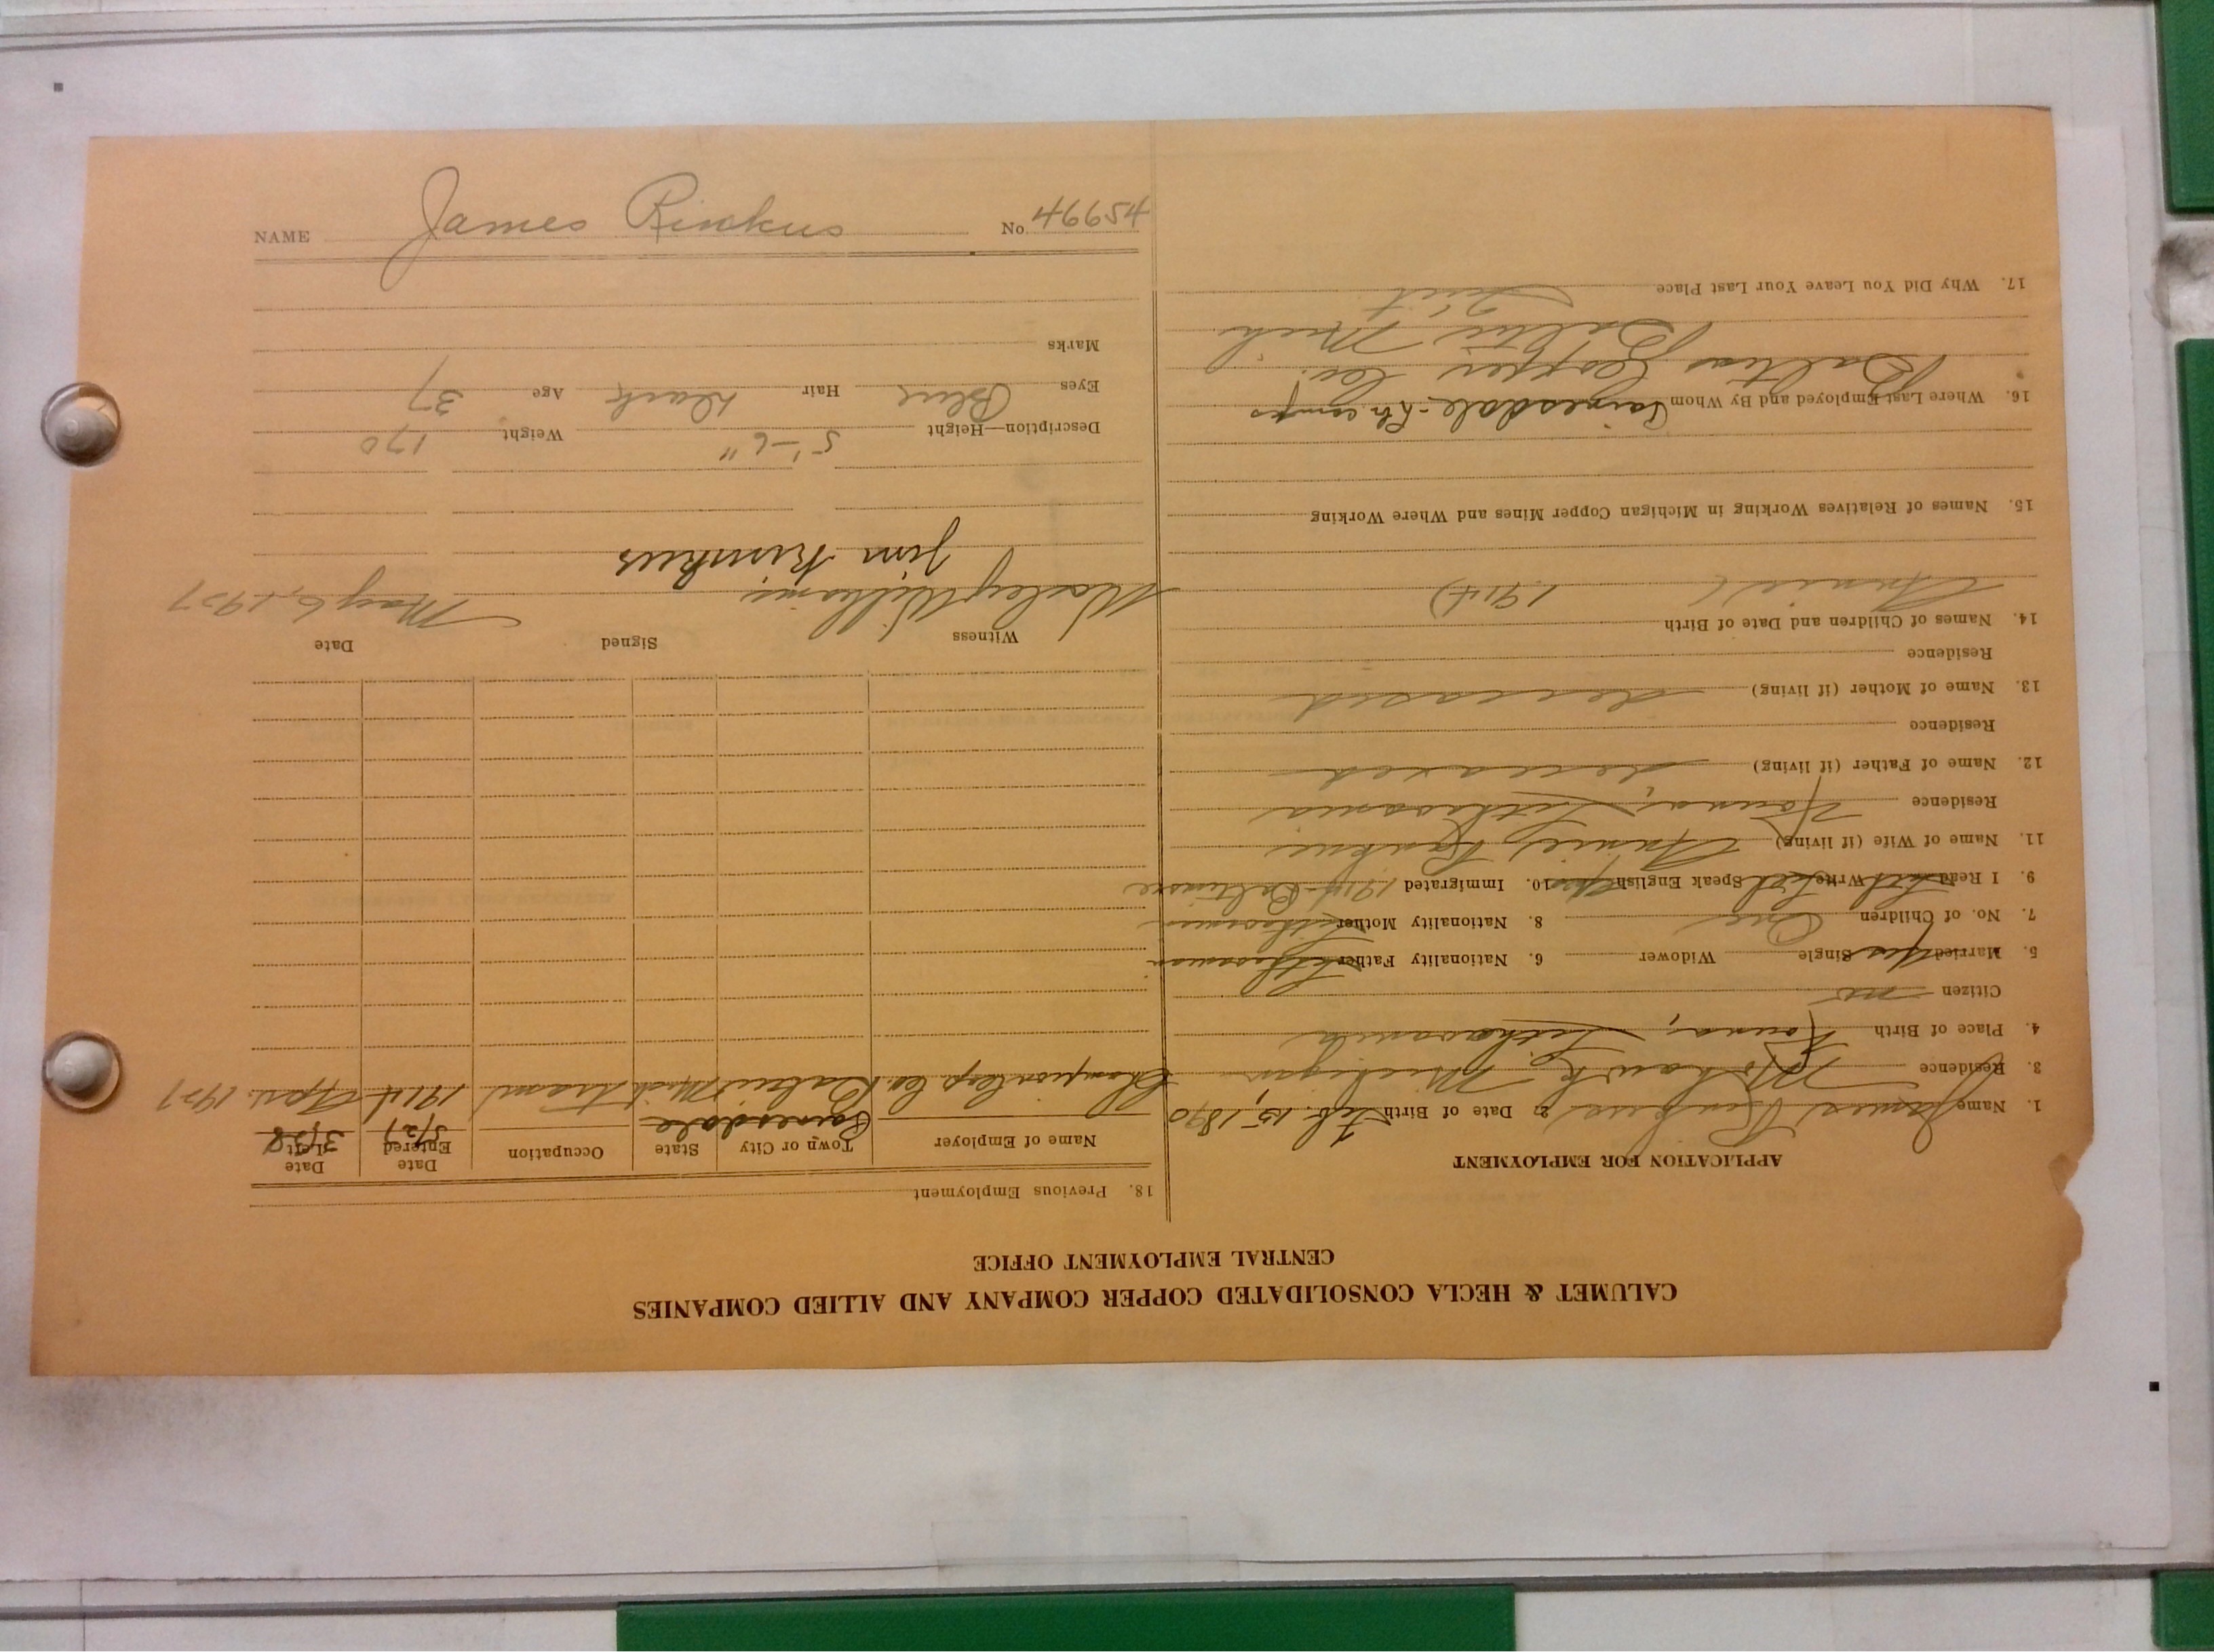 CALUMET & HECLA CONSOLIDATED COPPER COMPANY AND ALLIED COMPANIES
CENTRAL EMPLOYMENT OFFICE
APPLICATION FOR EMPLOYMENT
1. Name James 2. Date of Birth Feb. 15, 1890
3. Residence Mohawk, Michigan
4. Place of Birth Kouna, Lithuania
Citizen no
5. Married Yes Single Widower 6. Nationality Father
7. No. of Children One 8. Nationality Mother
9. I Read Write Speak English 10. Immigrated 1914 Baltimore
11. Name of Wife (if living) Annie
Residence Kouna, Lithuania
12. Name of Father (if living) deceased
Residence
13. Name of Mother (if living) deceased
Residence
14. Names of Children and Date of Birth
Annie (1914)
15. Names of Relatives Working in Michigan Copper Mines and Where Working
16. Where Last Employed and By Whom Painesdale
Baltic Copper Co.
Baltic Mich
17. Why Did You Leave Your Last Place Quit
18. Previous Employment
Name of Employer Town or City State Occupation Date Entered Date Left
Painesdale 5/27 3/28
Champion Cop. Co. Baltic Mich tram 1914 Apr. 1927
Witness Signed Date
Wesley Williams May 6, 1927
Jim Rinkus
Description—Height 5'-6" Weight 170
Eyes Blue Hair Dark Age 37
Marks
NAME James Rinkus No. 46654